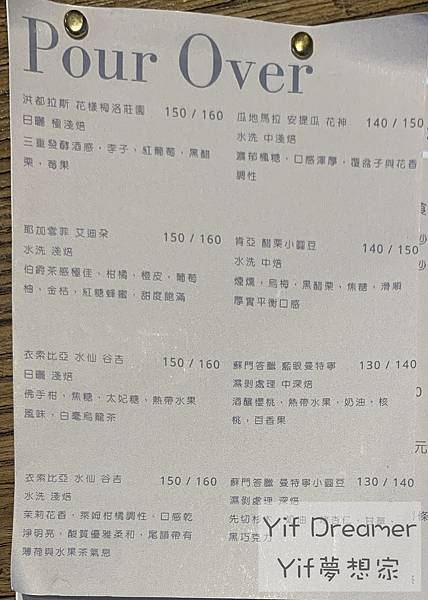 Pour Over
洪都拉斯 花樣梅洛莊園 150 / 160
日曬 極淺焙
三重發酵酒感，李子、紅葡萄、黑醋
栗、莓果
耶加雪菲 艾迪朵 150 / 160
水洗 淺焙
伯爵茶感極佳、柑橘、橙皮、葡萄
柚、金桔，紅糖蜂蜜，甜度飽滿
衣索比亞 水仙 谷吉 150 / 160
日曬 淺焙
佛手柑、焦糖、太妃糖、熱帶水果
風味、白毫烏龍茶
衣索比亞 水仙 谷吉 150 / 160
水洗 淺焙
茉莉花香，萊姆柑橘調性，口感乾
淨明亮，酸質優雅柔和，尾韻帶有
薄荷與水果茶氣息
瓜地馬拉 安提瓜 花神 140 / 150
水洗 中淺焙
濃郁楓糖、口感渾厚，覆盆子與花香
調性
肯亞 醋栗小圓豆 140 / 150
水洗 中焙
煙燻，烏梅，黑醋栗、焦糖，滑順
厚實平衡口感
蘇門答臘 藍眼曼特寧 130 / 140
濕剝處理 中深焙
酒釀櫻桃、熱帶水果、奶油、核
桃，百香果
蘇門答臘 曼特寧小圓豆 130 / 140
濕剝處理 深焙
黑巧克力
元
條
Yif Dreamer
Yif夢想家